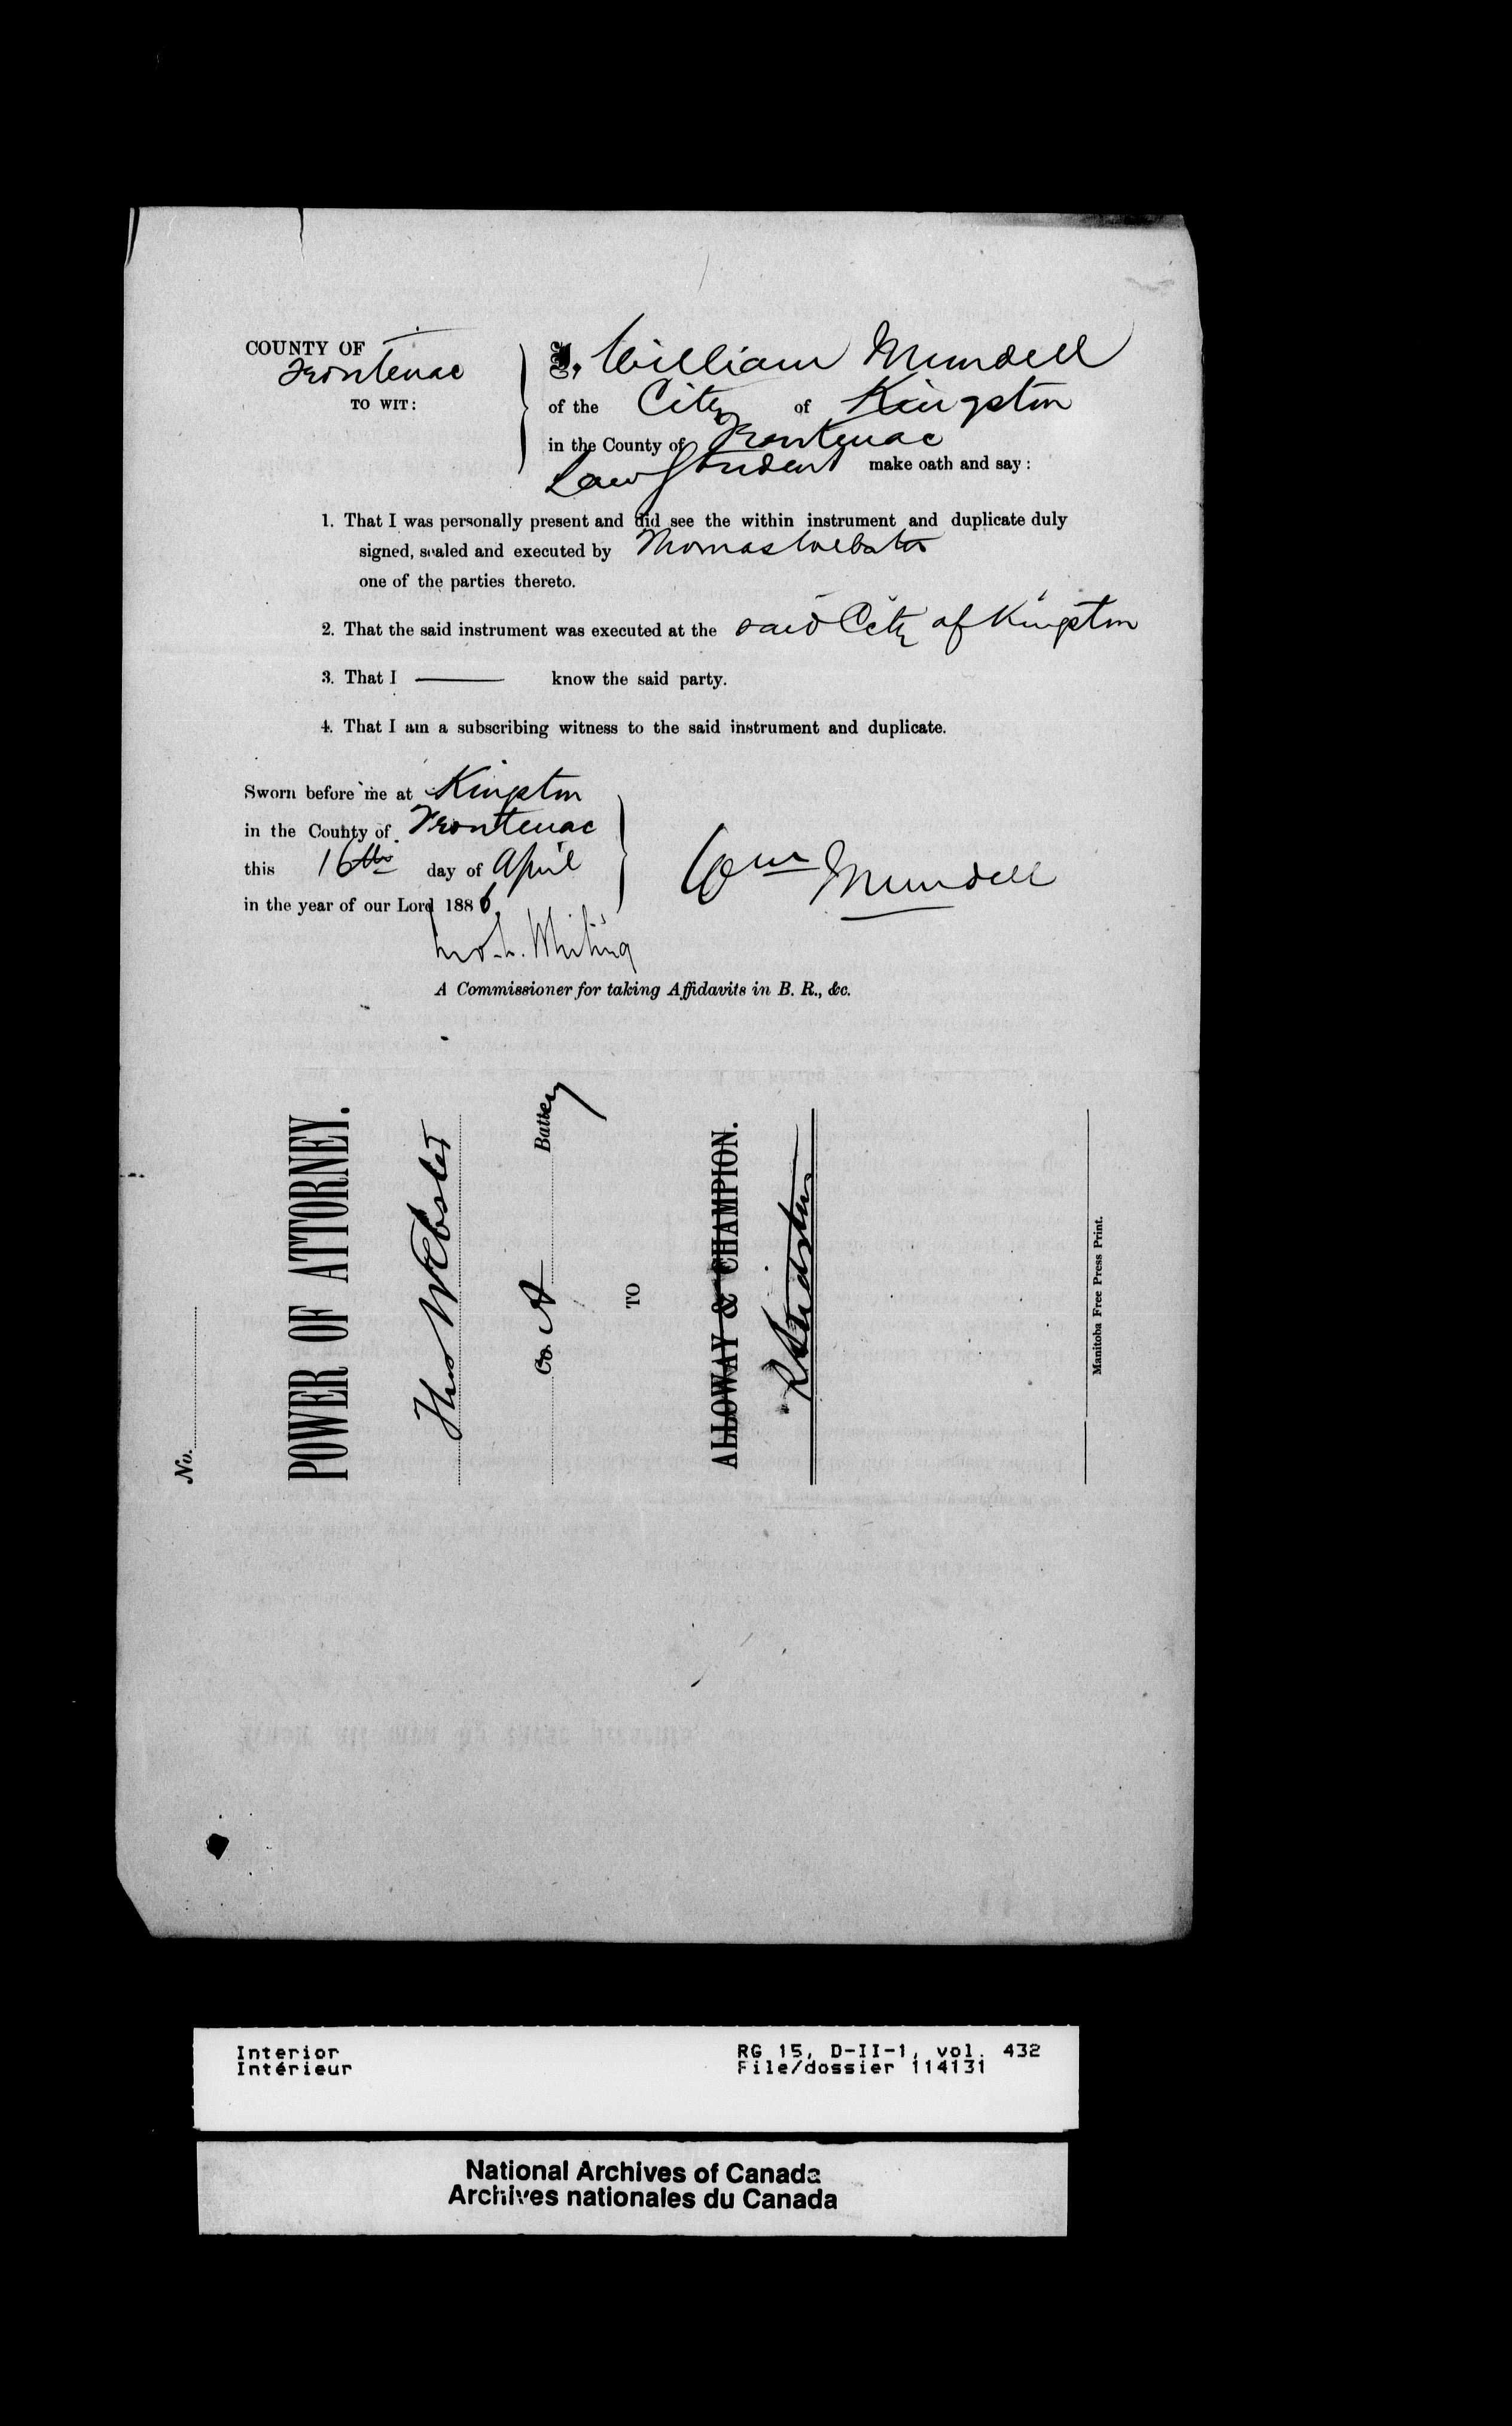 COUNTY OF
Frontenac
TO WIT:
I, William Mundell
of the City of Kingston
in the County of Frontenac
Law Student make oath and say:
1. That I was personally present and did see the within instrument and duplicate duly
signed, sealed and executed by Thomas Webster
one of the parties thereto.
2. That the said instrument was executed at the said City of Kingston
3. That I ——— know the said party.
4. That I am a subscribing witness to the said instrument and duplicate.
Sworn before me at Kingston
in the County of Frontenac
this 16th day of April
in the year of our Lord 1886
Wm Mundell
Whiting
A Commissioner for taking Affidavits in B. R., &c.
No.
POWER OF ATTORNEY.
Thos Webster
Co. A Battery
TO
ALLOWAY & CHAMPION.
Manitoba Free Press Print.
Interior
Intérieur
RG 15, D-II-1, vol. 432
File/dossier 114131
National Archives of Canada
Archives nationales du Canada